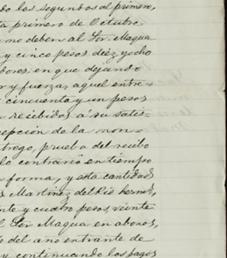 do los segundos al primero,
ta primero de Octubre
no deben al Sor. Magua
y cinco pesos diez y ocho
dores en que dejando
y fuerza, aquel entre
cincuenta y un pesos
recibidos a su satis
epcion de la non
trega, prueba del recibo
lo contrario en tiempo
forma, y esta cantidad
Martinez del Rio herms,
nte y cuatro pesos veinte
l Sor Magua en abonos,
o del año entrante de
y continuando los pagos